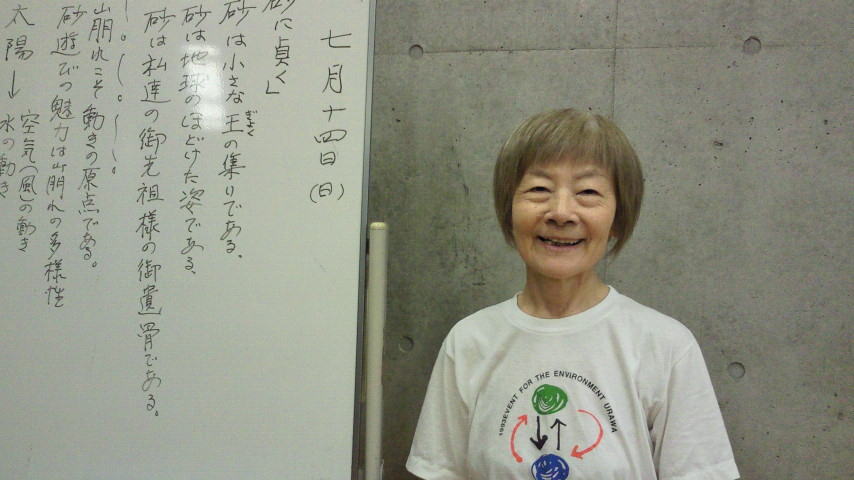 七月十四日(日)
砂に貞く」
砂は小さな王の集りである。
ぎょく
砂は地球のほどけた姿である、
砂は私達の御先祖様の御遺骨である。
〜。〜。〜〜。
山崩れこそ動きの原点である。
砂遊びの魅力は山崩れの多様性
太陽→空気(風)の動き
水の動き
1993EVENT FOR THE ENVIRONMENT URAWA